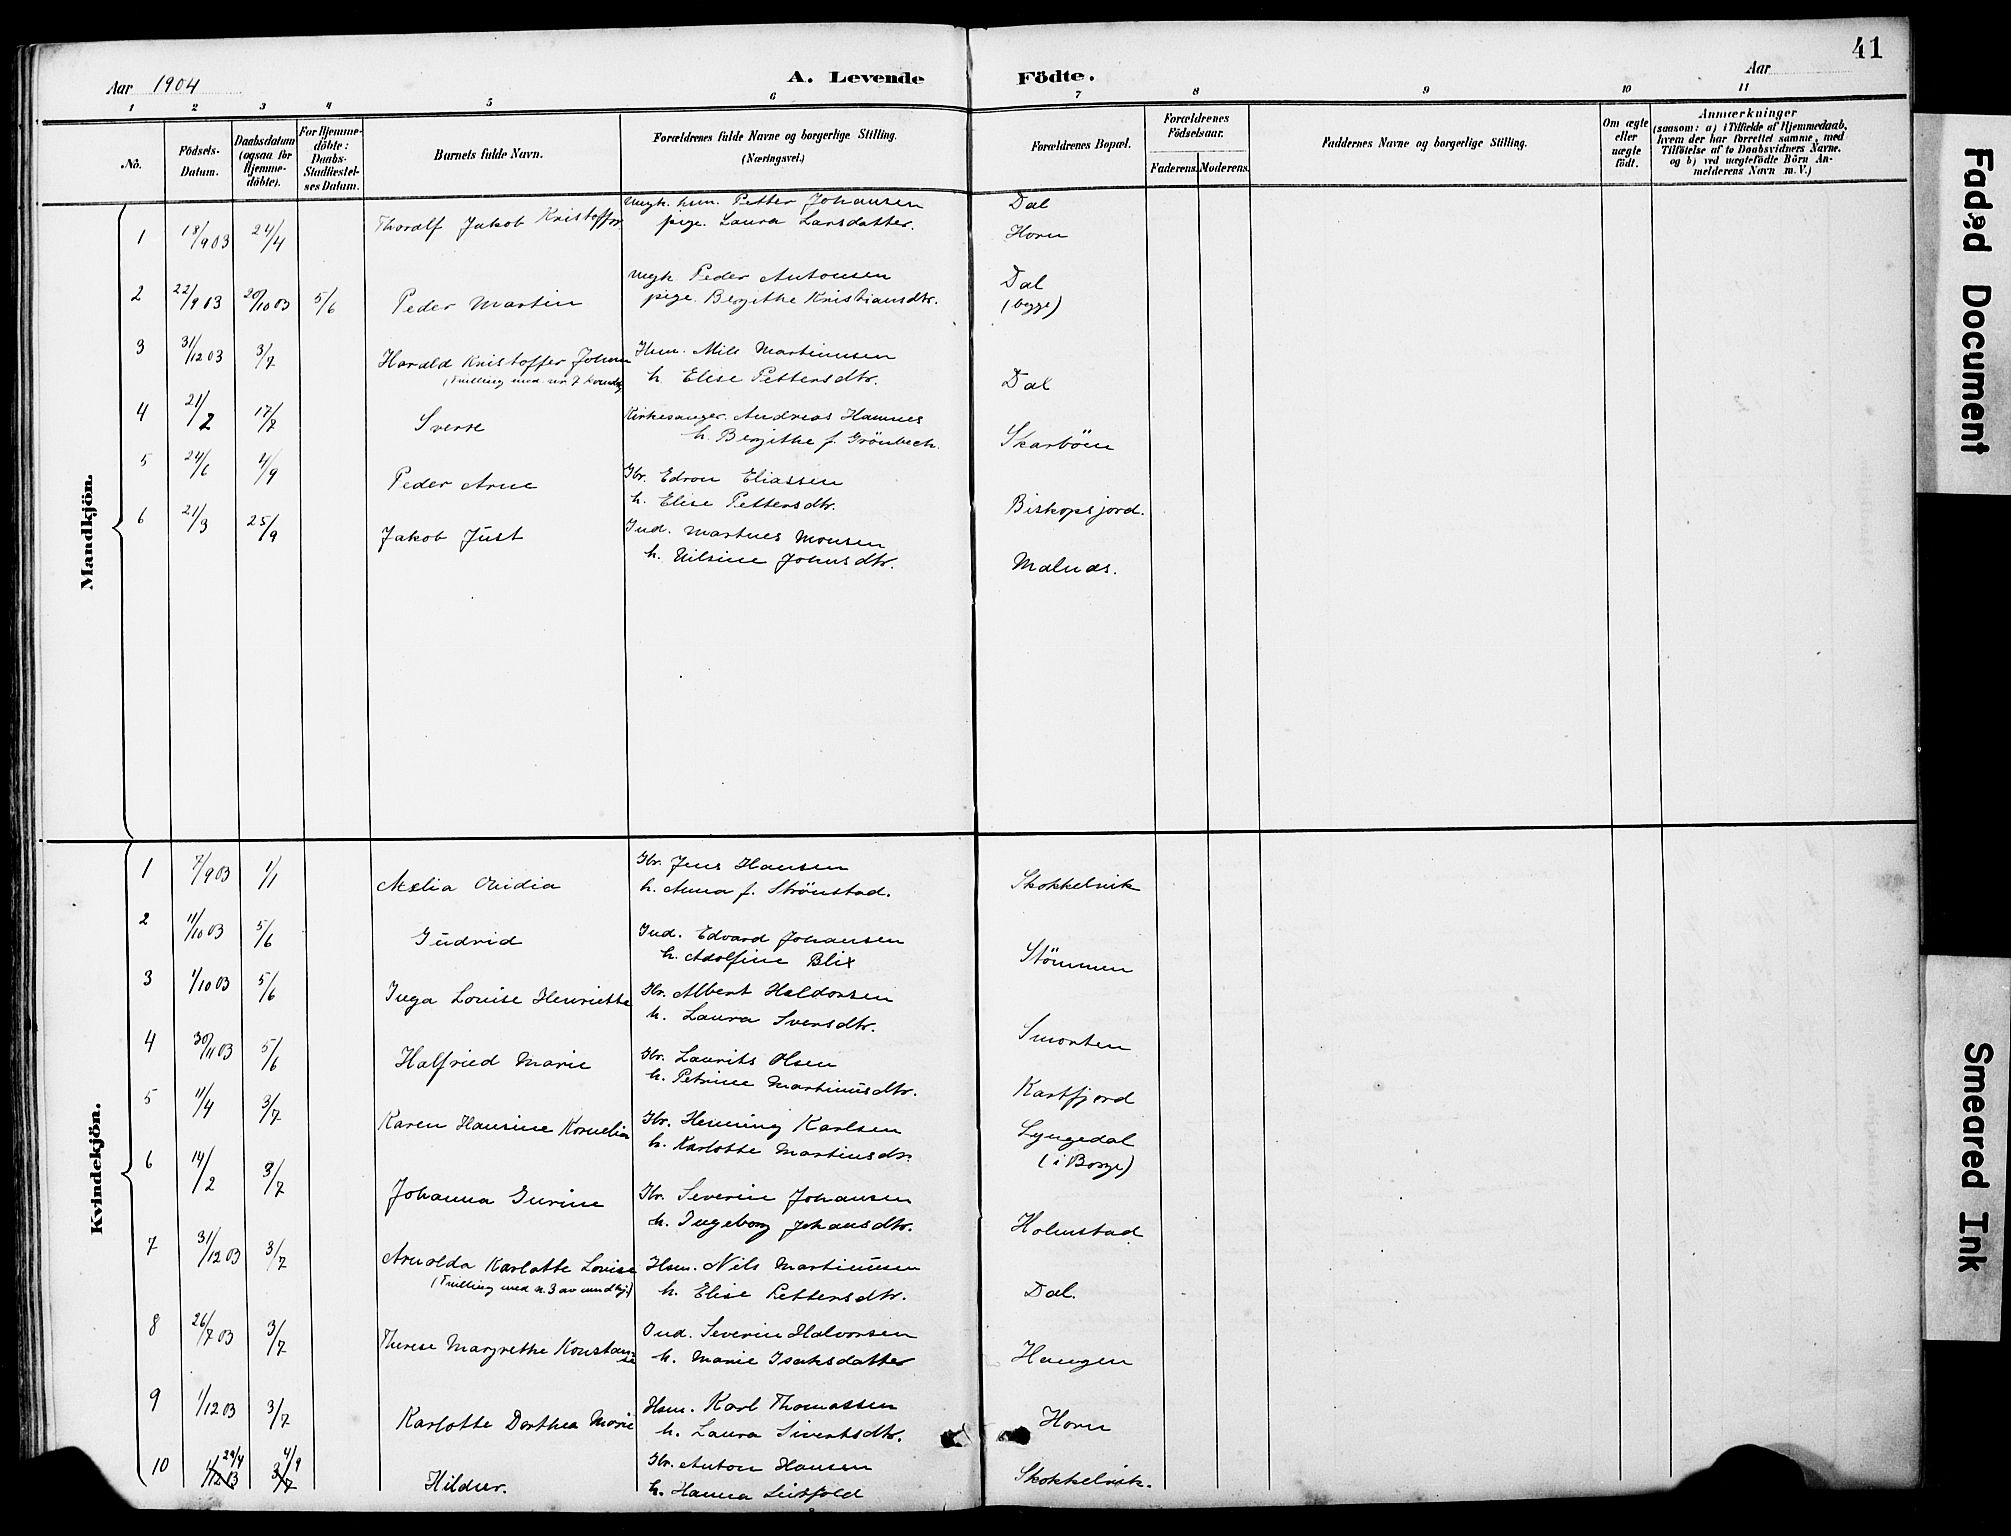 41
Aar 1904
A. Levende Födte.
Aar
1 2 3 4 5 6 7 8 9 10 11
No.
Födsels-Datum.
Daabsdatum (ogsaa for Hjemme-döbte).
For Hjemme-döbte: Daabs-Stadfæstel-ses Datum.
Barnets fulde Navn.
Forældrenes fulde Navne og borgerlige Stilling. (Næringsvei.)
Forældrenes Bopæl.
Forældrenes Födselsaar.
Faderens. Moderens.
Faddernes Navne og borgerlige Stilling.
Om ægte eller uægte födt.
Anmærkninger
(saasom: a) i Tilfælde af Hjemmedaab,
hvem der har forrettet samme, med
Tilföielse af to Daabsvidners Navne.
og b) ved uægtefödte Börn An-
melderens Navn m. V.)
Mandkjön.
1 18/9 03 24/4 Thoralf Jakob Kristoffer ungk. hsm. Petter Johansen Dal
pige. Laura Larsdatter. Horn
2 22/9 03 20/10 03 5/6 Peder Martin ungk. Peder Antonsen Dal
pige. Bergithe Kristiansdtr. (begge)
3 31/12 03 3/7 Harald Kristoffer Johan Hsm. Nils Martinusen
(Tvilling med nr 7 kvindkj) h. Elise Pettersdtr. Dal
4 21/2 17/7 Sverre Kirkesanger. Andreas Hamnes
h. Bergithe f. Grönbech. Skarböen
5 24/6 4/9 Peder Arne Gbr. Edvon Eliassen
h. Elise Pettersdtr. Biskopsjord.
6 21/3 25/9 Jakob Just Ind. Martnes Monsen
h. Nilsine Johnsdtr. Malnes.
Kvindekjön.
1 7/9 03 1/1 Aslia Ovidia Gbr. Jens Hansen
h. Anna f. Strönstad. Skokkelvik
2 11/10 03 5/6 Gudrid Ind. Edvard Johansen
h. Adolfine Blix Stömmen
3 1/10 03 5/6 Inga Louise Henriette Gbr. Albert Haldorsen
h. Laura Sversdtr. Smorten
4 30/11 03 5/6 Halfried Marie Gbr. Laurits Olsen
h. Petrine Martinusdtr. Kartfjord
5 11/4 3/7 Karen Hansine Kornelia Gbr. Henning Karlsen Lyngedal
h. Karlotte Martinsdtr. (i Borge)
6 14/2 3/7 Johanna Gurine Gbr. Severin Johansen
h. Ingeborg Johansdtr. Holmstad
7 31/12 03 3/7 Arnolda Karlotte Lovise Hsm. Nils Martinusen
(Tvilling med n. 3 av mandkj.) h. Elise Pettersdtr. Dal.
8 26/7 03 3/7 Therese Margrethe Konstanse Ind. Severin Halvorsen
h. Marie Isaksdatter Haugen
9 1/12 03 3/7 Karlotte Dorthea Marie Hsm. Karl Thomassen
h. Laura Sivertsdtr. Horn
10 29/4 4/9 Hildur. Gbr. Anton Hansen
h. Hanna Leitfold Skokkelvik.
Faded Document
Smeared Ink